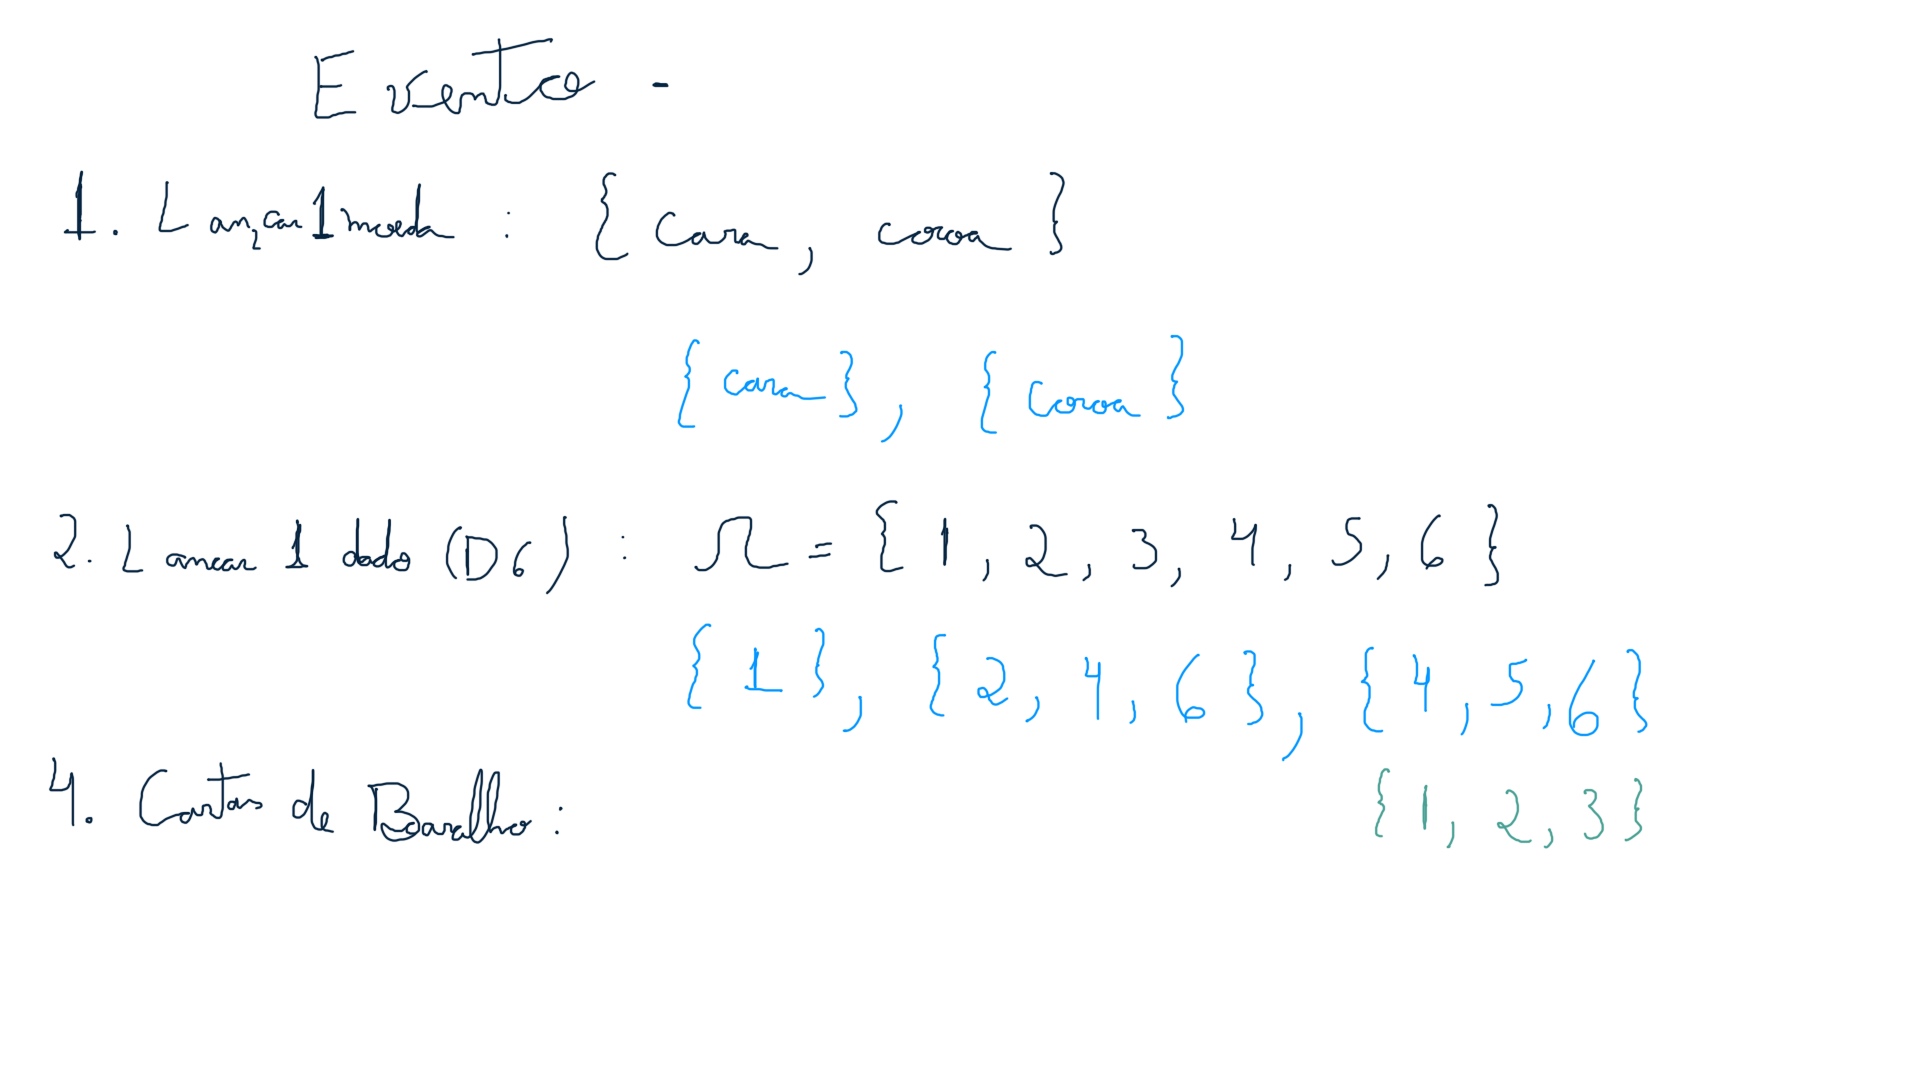 Evento -
1. Lançar 1 moeda : { cara, coroa }
{ cara }, { coroa }
2. Lancar 1 dado (D6) : Ω = { 1, 2, 3, 4, 5, 6 }
{ 1 }, { 2, 4, 6 }, { 4, 5, 6 }
4. Cartas de Baralho :
{ 1, 2, 3 }